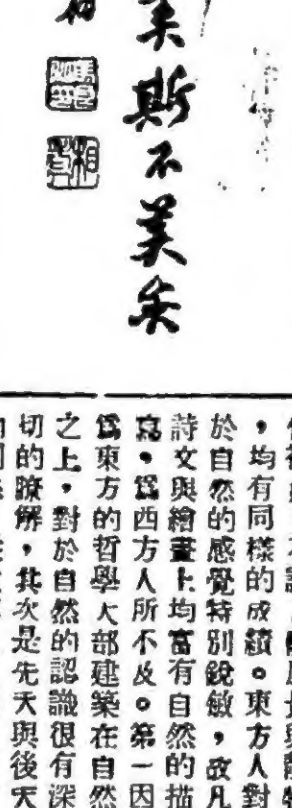 美斯不美矣
，均有同樣的成績。東方人對
於自然的感覺特別銳敏，故凡
詩文與繪畫上均富有自然的描
寫，爲西方人所不及。第一因
爲東方的哲學大部建築在自然
之上，對於自然的認識很有深
切的瞭解，其次是先天與後天